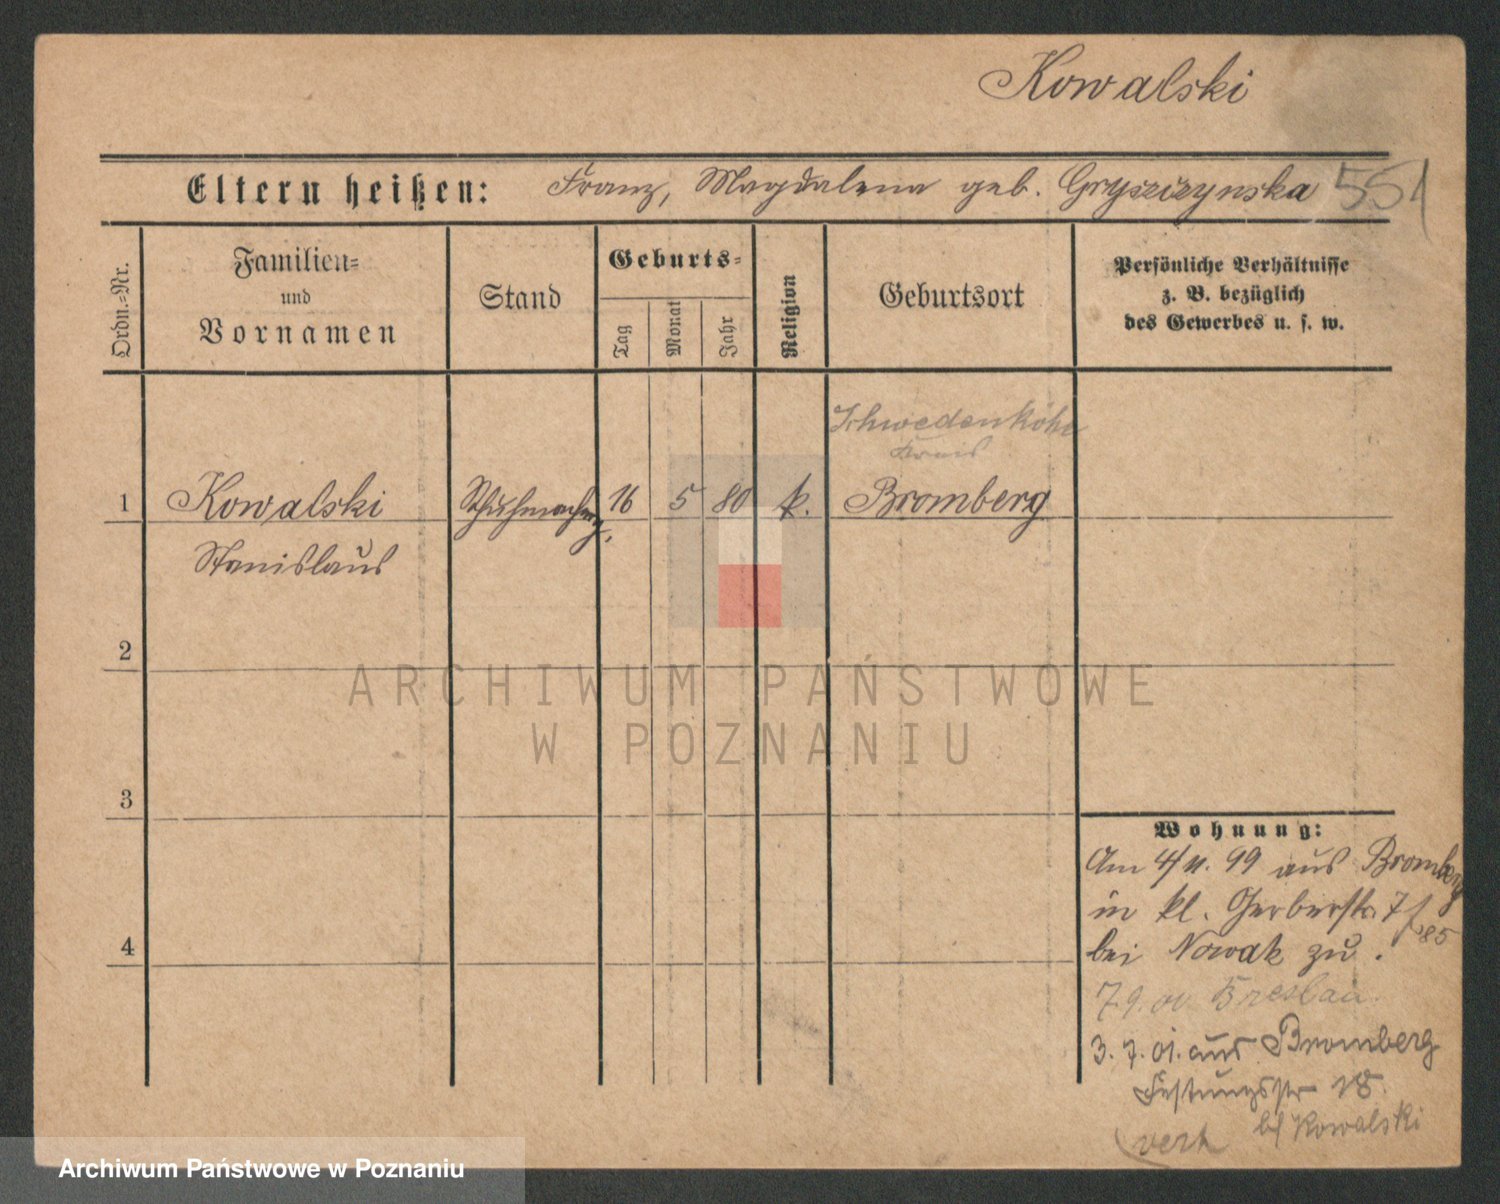 Kowalski
Eltern heißen: Franz, Magdalena geb. Gryszczynska 551
Ordn.-Nr.
Familien-
und
Vornamen
Stand
Geburts-
Tag
Monat
Jahr
Religion
Geburtsort
Persönliche Verhältnisse
z. B. bezüglich
des Gewerbes u. s. w.
Schwedenhöhe
Kreis
1 Kowalski Schuhmacherg. 16 5 80 k. Bromberg
Stanislaus
2
ARCHIWUM PAŃSTWOWE
W POZNANIU
3
Wohnung:
Am 4/11. 99 aus Bromberg
in kl. Gerberstr. 7
85
4
bei Nowak zu.
7.9.00 Breslau.
3. 7. 01. aus Bromberg
Festungsstr 18.
bei Kowalski
verh
Archiwum Państwowe w Poznaniu